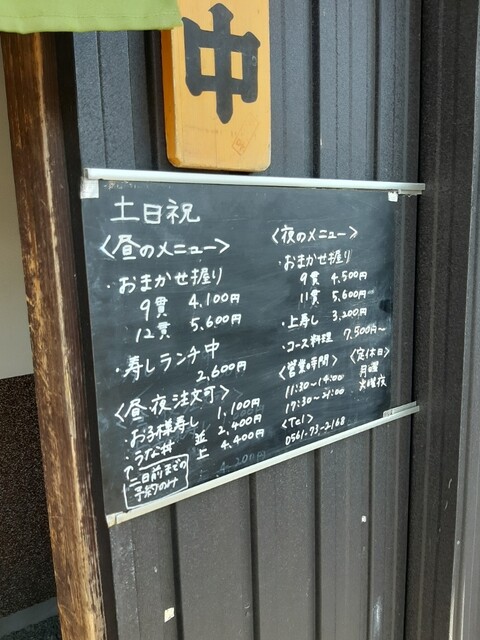 中
土日祝
〈昼のメニュー〉
・おまかせ握り
9貫 4,100円
12貫 5,600円
・寿しランチ中
2,600円
〈昼・夜注文可〉
・お子様寿し 1,100円
・うな丼 並 2,400円
上 4,400円
↑
二日前までの
予約のみ
4,200円
〈夜のメニュー〉
・おまかせ握り
9貫 4,500円
11貫 5,600円
・上寿し 3,200円
・コース料理 7,500円〜
〈営業時間〉
11:30〜14:00
17:30〜21:00
〈定休日〉
月曜
火曜夜
〈Tel〉
0561-73-2168